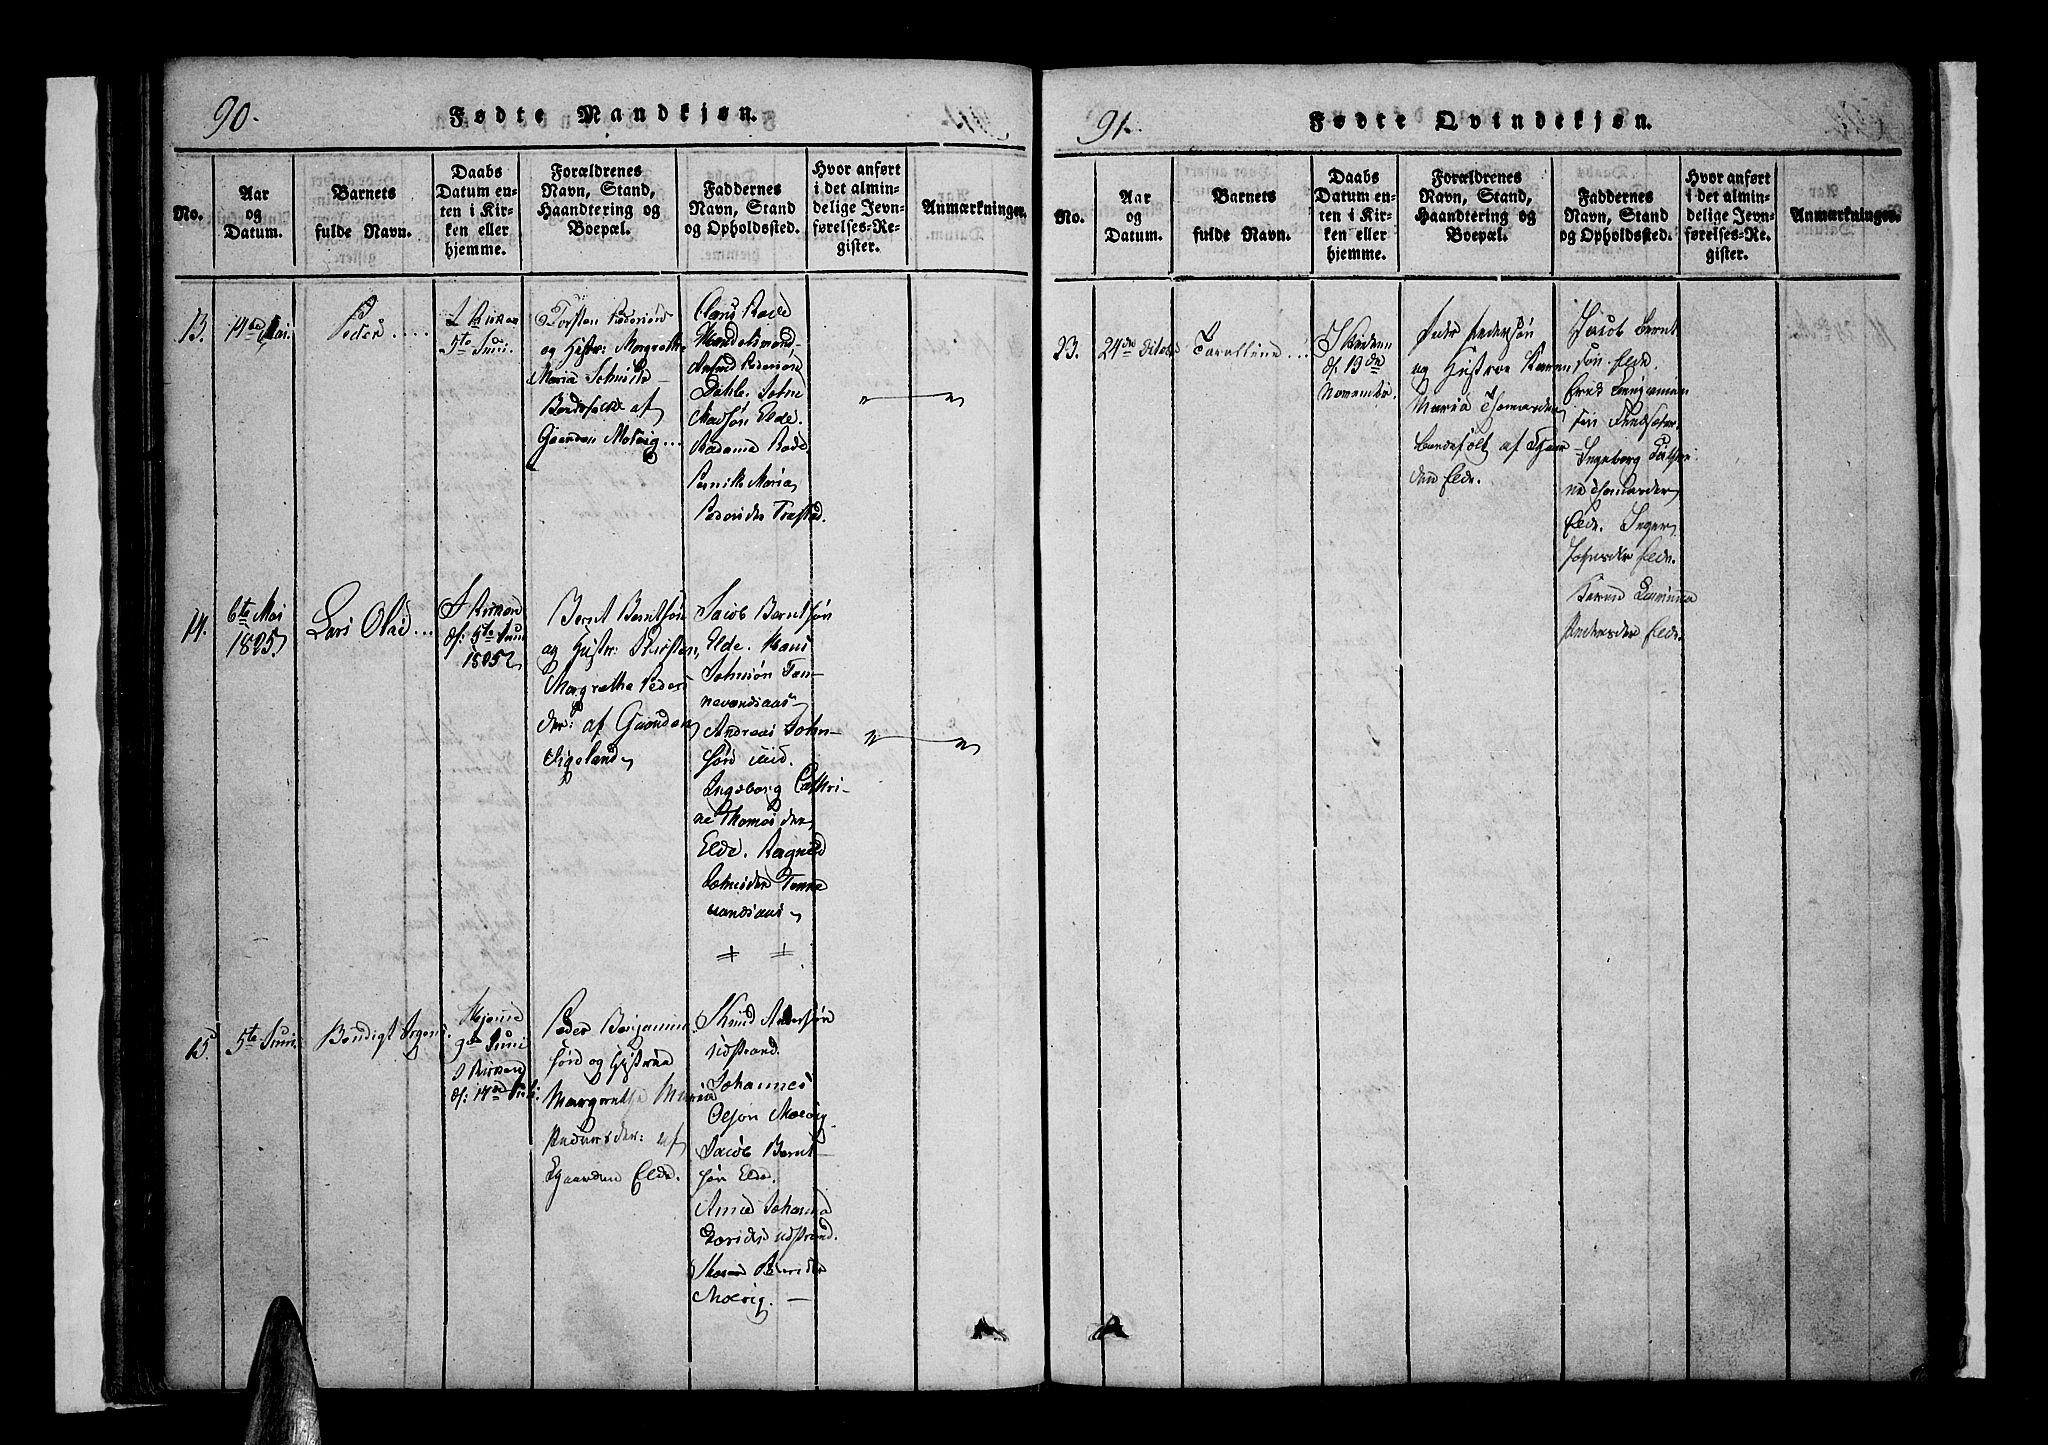 90.
Fødte Mandkjøn.
No.
Aar
og
Datum.
Barnets
fulde Navn.
Daabs
Datum en-
ten i Kir-
ken eller
hjemme.
Forældrenes
Navn, Stand,
Haandtering og
Boepæl.
Faddernes
Navn, Stand
og Opholdssted.
Hvor anført
i det almin-
delige Jevn-
førelses-Re-
gister.
Anmærkninger.
13.
19de Mai.
Peder....
I Kirken
5te Juni.
Torsten Pedersøn
og Hustr: Margrethe
Maria Schmidt
af
Gaarden Molvig...
Claus Rode
Arnt Pedersøn
Dahle.
Madsøn Elde.
Madame Rode
Pernille Maria
Pedersder Trastad.
14.
6te Mai
1825
Lars Olai...
I Kirken
d: 5te Juni
1825
Bernt Berntsøn
og Hustr: Kirsten
Margrethe Peders
der: af Gaarden
Sigeland
Jacob Berntsøn
Elde. Hans
Johnsøn Ten-
nevandsaas
Andreas John-
søn ibid.
Ingeborg Cathri-
ne Thomasder
Elde. Ragnild
Johnsder Tenne
vandsaas
15.
5te Juni.
Bendigt Argens.
Hjemme
9de Juni
I Kirken
d: 17de Juli.
Peder Benjamin
søn og Hustrue
Margrethe Maria
Pedersder: af
Gaarden Elde.
Knud Andersøn
Udstrand.
Johannes
Olsøn Molvig
Jacob Bernt
søn Elde.
Anne Johanna
Udstrand.
Maren
Molvig.
91.
Fødte Qvindekjøn.
No.
Aar
og
Datum.
Barnets
fulde Navn.
Daabs
Datum en-
ten i Kir-
ken eller
hjemme.
Forældrenes
Navn, Stand,
Haandtering og
Boepæl.
Faddernes
Navn, Stand
og Opholdssted.
Hvor anført
i det almin-
delige Jevn-
førelses-Re-
gister.
Anmærkninger.
23.
24de Octobr
...
I Kirken
d. 13de
Novembr.
Peder Pedersøn
og Hustrue Karen
Maria Thomasder
Bondefolk af Gaar
den Elde.
Jacob Bernt
søn Elde.
Benjamin
søn
Ingeborg Cathri
ne Thomasder
Elde. Inger
Johnsder Elde.
Karen
Andersder Elde.